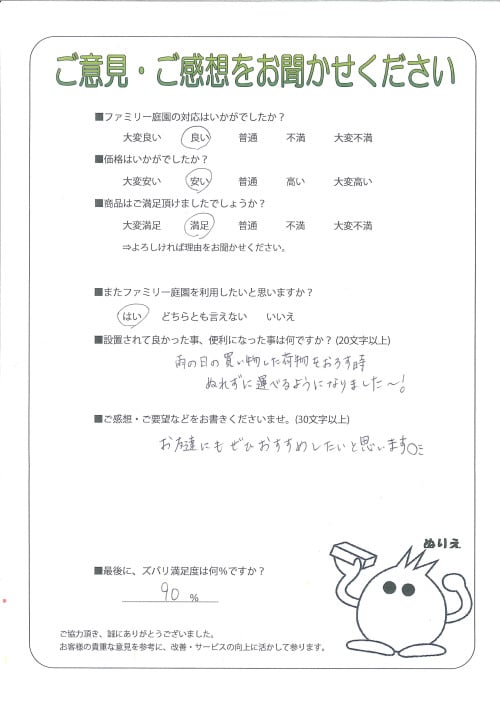 ご意見・ご感想をお聞かせください
■ファミリー庭園の対応はいかがでしたか？
大変良い 良い 普通 不満 大変不満
■価格はいかがでしたか？
大変安い 安い 普通 高い 大変高い
■商品はご満足頂けましたでしょうか？
大変満足 満足 普通 不満 大変不満
⇒よろしければ理由をお聞かせください。
■またファミリー庭園を利用したいと思いますか？
はい どちらとも言えない いいえ
■設置されて良かった事、便利になった事は何ですか？(20文字以上)
雨の日の買い物した荷物をおろす時
ぬれずに運べるようになりました～！
■ご感想・ご要望などをお書きくださいませ。(30文字以上)
お友達にもぜひおすすめしたいと思います
ぬりえ
■最後に、ズバリ満足度は何％ですか？
90 %
ご協力頂き、誠にありがとうございました。
お客様の貴重な意見を参考に、改善・サービスの向上に活かして参ります。